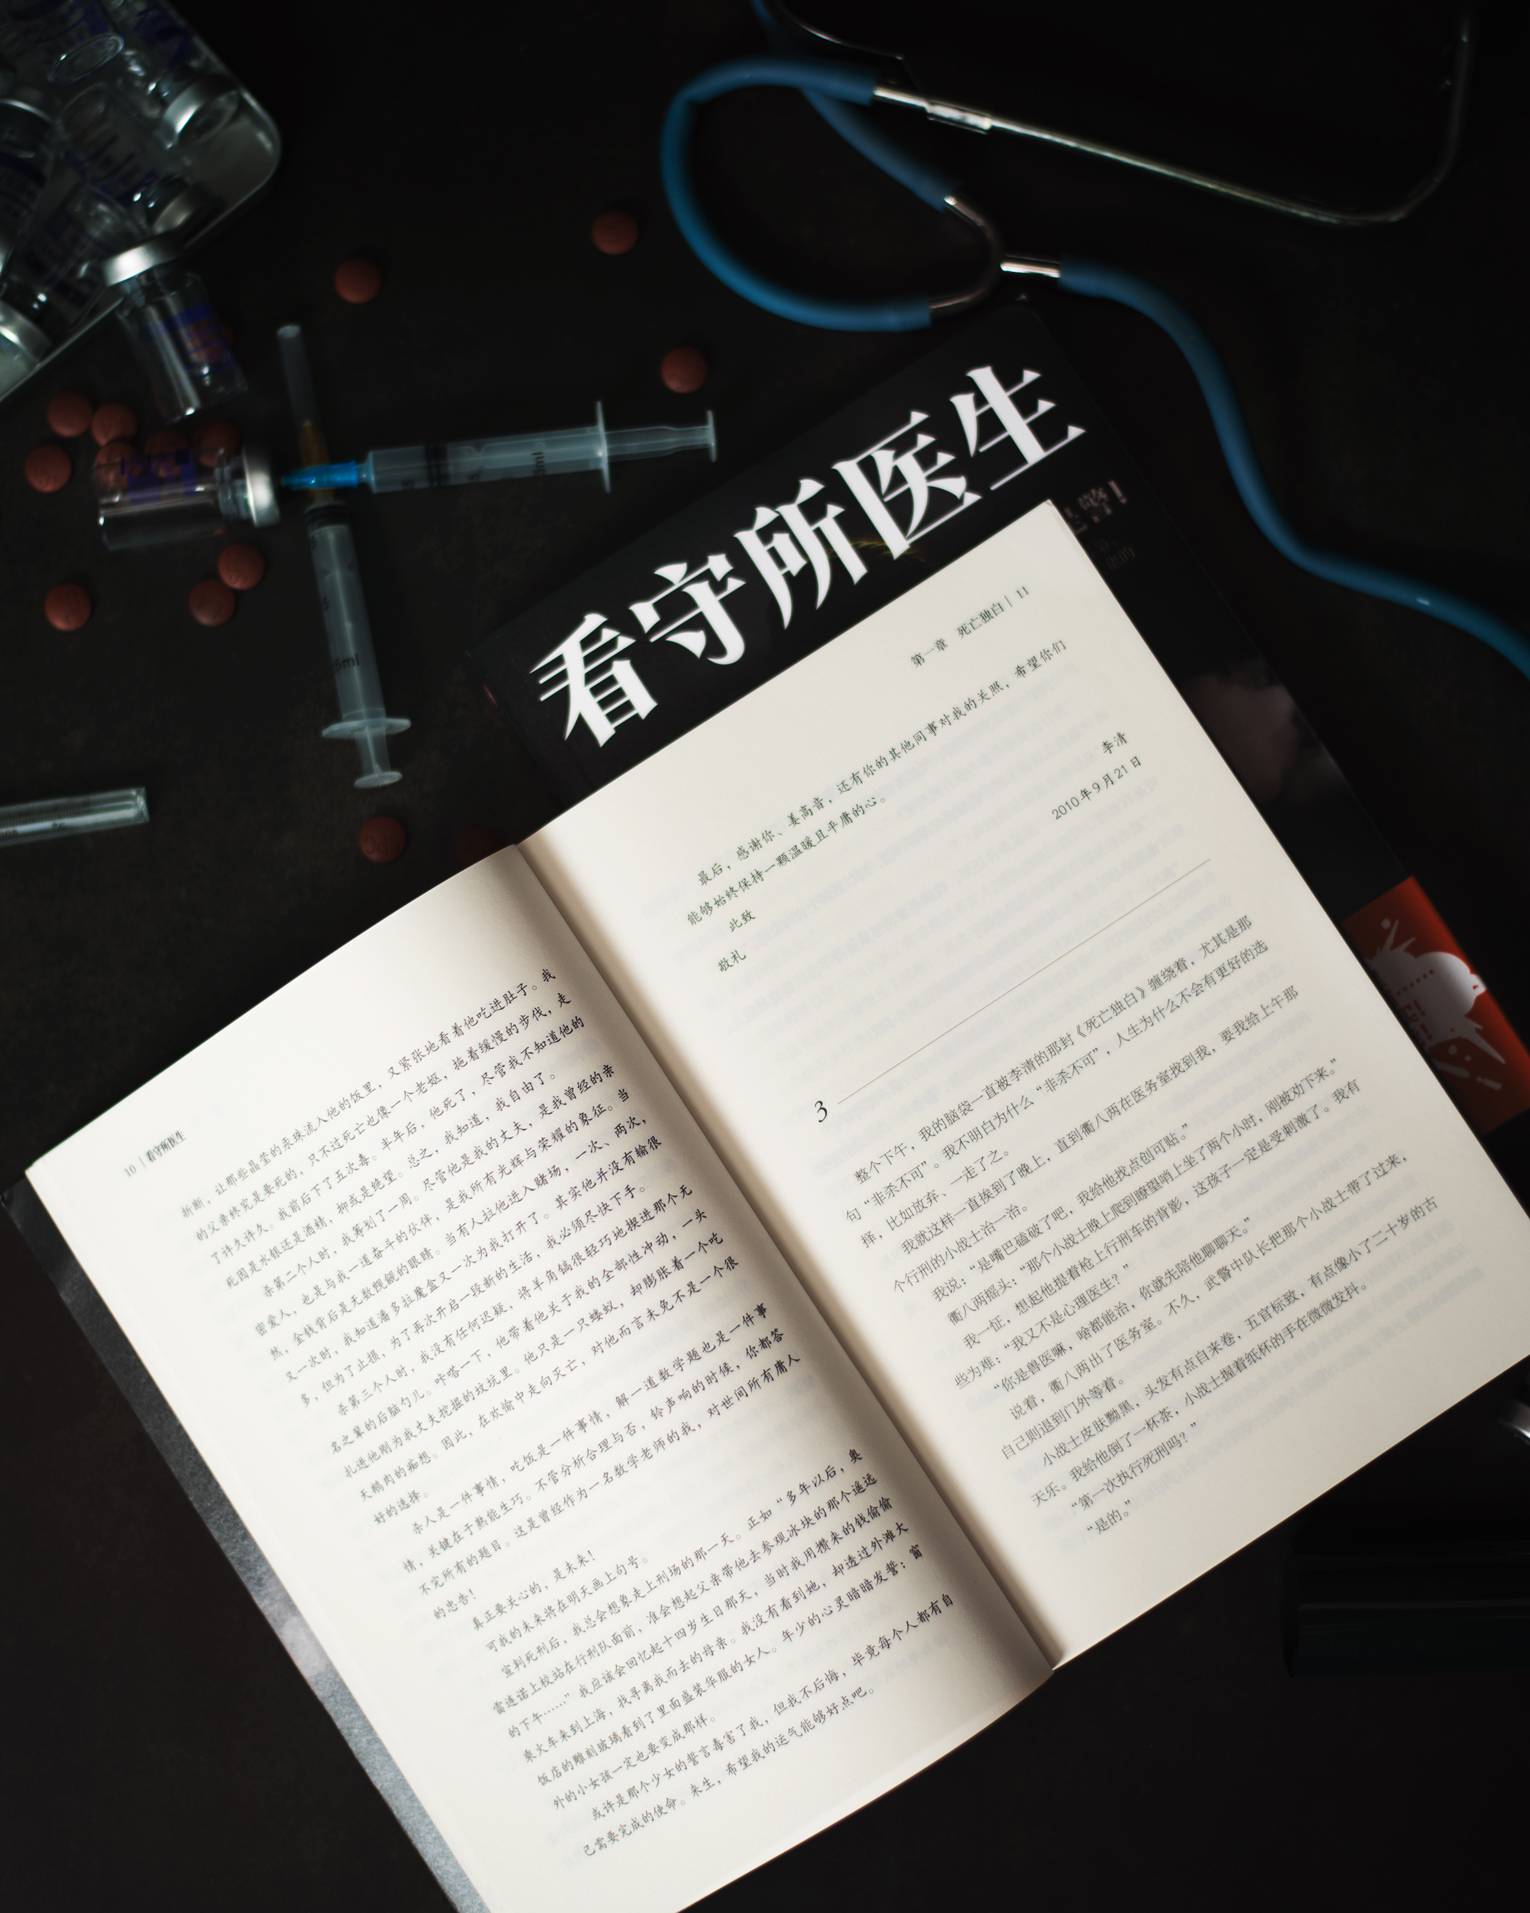 看守所医生
10 | 看守所医生
折断，让那些晶莹的汞珠流入他的饭里，又紧张地看着他吃进肚子。我
的父亲终究是要死的，只不过死亡也像一个老妪，拖着缓慢的步伐，走
了许久许久。我前后下了五次毒。半年后，他死了，尽管我不知道他的
死因是水银还是酒精，抑或是绝望。总之，我知道，我自由了。
杀第二个人时，我筹划了一周。尽管他是我的丈夫，是我曾经的亲
密爱人，也是与我一道奋斗的伙伴，是我所有光辉与荣耀的象征。当
然，金钱背后是无数觊觎的眼睛。当有人拉他进入赌场，一次、两次，
又一次时，我知道潘多拉魔盒又一次为我打开了。其实他并没有输很
多，但为了止损，为了再次开启一段新的生活，我必须尽快下手。
杀第三个人时，我没有任何迟疑，将羊角镐很轻巧地楔进那个无
名之辈的后脑勺儿。咔嗒一下，他带着他关于我的全部性冲动，一头
扎进他刚为我丈夫挖掘的坟坑里。他只是一只蝼蚁，却膨胀着一个吃
天鹅肉的痴想。因此，在欢愉中走向灭亡，对他而言未免不是一个很
好的选择。
杀人是一件事情，吃饭是一件事情，解一道数学题也是一件事
情，关键在于熟能生巧。不管分析合理与否，铃声响的时候，你都答
不完所有的题目。这是曾经作为一名数学老师的我，对世间所有庸人
的忠告！
真正要关心的，是未来！
可我的未来将在明天画上句号。
宣判死刑后，我总会想象走上刑场的那一天。正如“多年以后，奥
雷连诺上校站在行刑队面前，准会想起父亲带他去参观冰块的那个遥远
的下午……”我应该会回忆起十四岁生日那天，当时我用攒来的钱偷偷
乘火车来到上海，找寻离我而去的母亲。我没有看到她，却透过外滩大
饭店的雕刻玻璃看到了里面盛装华服的女人。年少的心灵暗暗发誓：窗
外的小女孩一定也要变成那样。
或许是那个少女的誓言毒害了我，但我不后悔，毕竟每个人都有自
己需要完成的使命。来生，希望我的运气能够好点吧。
第一章 死亡独白 | 11
最后，感谢你、姜高音，还有你的其他同事对我的关照，希望你们
能够始终保持一颗温暖且平庸的心。
此致
敬礼
李清
2010年9月21日
3
整个下午，我的脑袋一直被李清的那封《死亡独白》缠绕着，尤其是那
句“非杀不可”。我不明白为什么“非杀不可”，人生为什么不会有更好的选
择，比如放弃、一走了之。
我就这样一直挨到了晚上，直到衢八两在医务室找到我，要我给上午那
个行刑的小战士治一治。
我说：“是嘴巴磕破了吧，我给他找点创可贴。”
衢八两摇头：“那个小战士晚上爬到瞭望哨上坐了两个小时，刚被劝下来。”
我一怔，想起他提着枪上行刑车的背影，这孩子一定是受刺激了。我有
些为难：“我又不是心理医生？”
“你是兽医嘛，啥都能治，你就先陪他聊聊天。”
说着，衢八两出了医务室。不久，武警中队长把那个小战士带了过来，
自己则退到门外等着。
小战士皮肤黝黑，头发有点自来卷，五官标致，有点像小了二十岁的古
天乐。我给他倒了一杯茶，小战士握着纸杯的手在微微发抖。
“第一次执行死刑吗？”
“是的。”
5ml